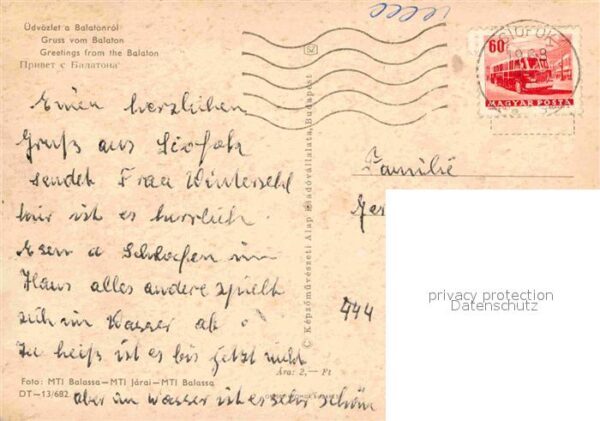 Üdvözlet a Balatonról
Gruss vom Balaton
Greetings from the Balaton
Привет с Балатона
SIÓFOK
60f
MAGYAR POSTA
Einen herzlichen
Gruß aus Siofok
sendet Frau
hir ist es herrlich
Esen a Schlafen im
Haus alles andere spielt
sich im Wasser ab.
Zu heiß ist es bis jetzt nicht
aber im Wasser ist es sehr schön
© Képzőművészeti Alap Kiadóvállalata, Budapest
Familie
444
Ára: 2,— Ft
Foto: MTI Balassa—MTI Járai—MTI Balassa
DT—13/682
privacy protection
Datenschutz